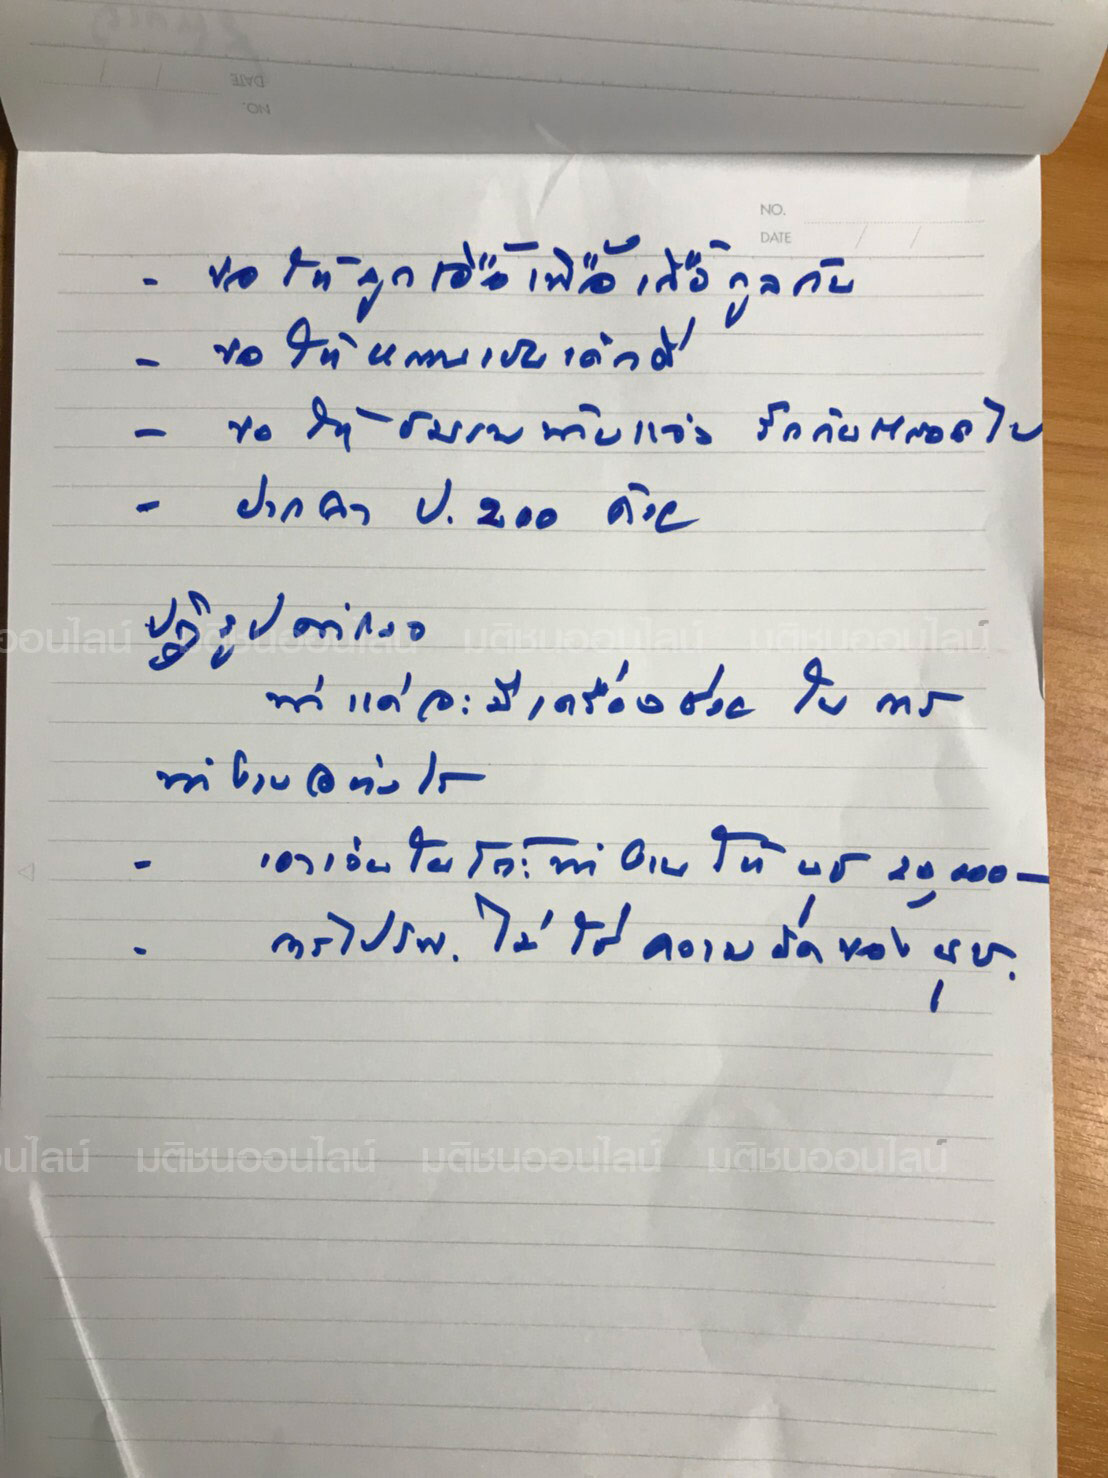 NO.
DATE
NO.
DATE / /
- ขอให้ลูกเอื้อเฟื้อเกื้อกูลกัน
- ขอให้หลานเป็นเด็กดี
- ขอให้ชมรมทับแก้ว รักกันตลอดไป
- ฝากคำ ป.200 ด้วย
ปฏิรูปตำรวจ
ทำแต่จะมีเครื่องช่วย ในการ
ทำงานอย่างไร
- เอาเงินในโต๊ะทำงาน ให้ นุช 20,000-
- การไปรพ. ไม่ใช่ความผิดของ นุช.
มติชนออนไลน์ มติชนออนไลน์ มติชนออนไลน์ มติชนออนไลน์
มติชนออนไลน์ มติชนออนไลน์ มติชนออนไลน์ มติชนออนไลน์